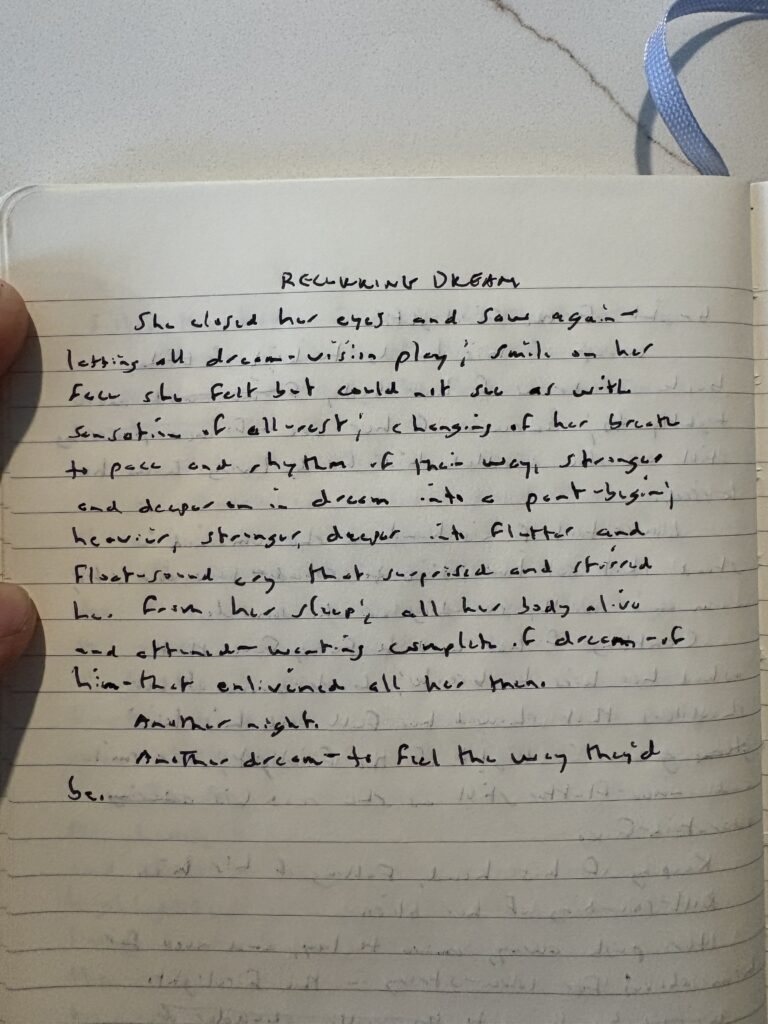 RECURRING DREAM
She closed her eyes and saw again—
letting all dream-vision play; smile on her
face she felt but could not see as with
sensation of all-rest; changing of her breath
to pace and rhythm of their way, stronger
and deeper on in dream into a pant-begin;
heavier, stronger, deeper into flutter and
float-sound cry that surprised and stirred
her from her sleep; all her body alive
and attuned—wanting complete of dream—of
him—that enlivened all her then.
Another night.
Another dream—to feel the way they'd
be.